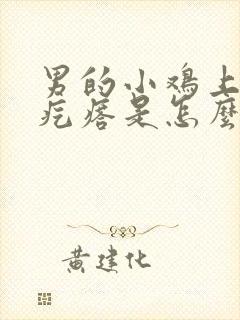 男的小鸡上
疙瘩是怎麼
黄建化